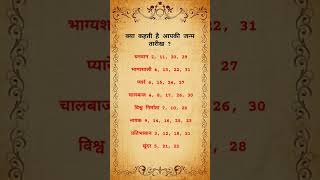 क्या कहती है आपकी जन्म
तारीख ?
धनवान 2, 11, 20, 29
भाग्यशाली 4, 13, 22, 31
प्यारे 6, 15, 24, 27
चालबाज 4, 8, 17, 26, 30
विश्व निर्माता 7, 10, 28
भावुक 9, 14, 16, 25, 23
प्रतिभावान 3, 12, 18, 21
सुंदर 5, 21, 22
भाग्यश
31
प्यारे
चालबाज
विश्व
, 28